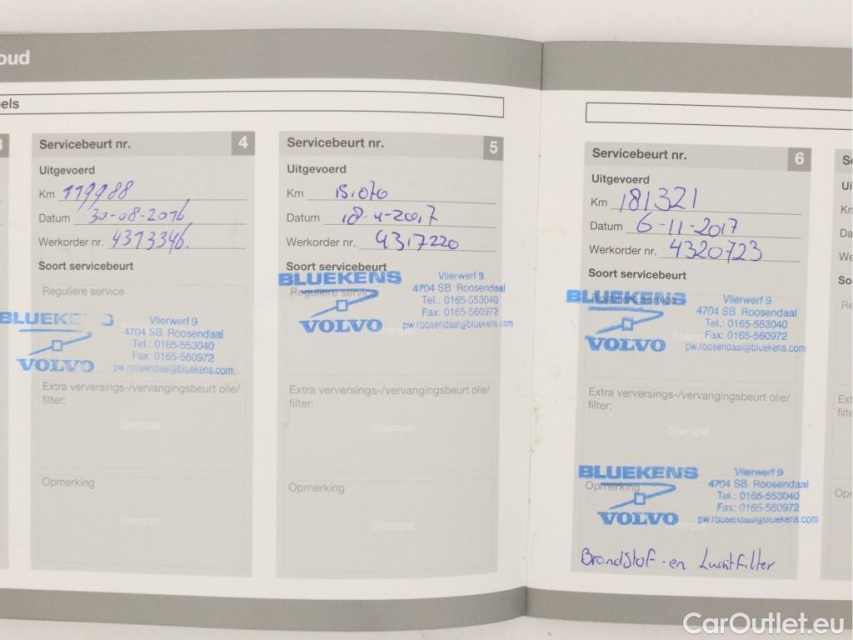 oud
els
Servicebeurt nr. 4
Uitgevoerd
Km 119988
Datum 30-08-2016
Werkorder nr. 4313346
Soort servicebeurt
Reguliere service
BLUEKENS
VOLVO
Vlierwerf 9
4704 SB Roosendaal
Tel.: 0165-553040
Fax: 0165-560972
pw.roosendaal@bluekens.com
Extra verversings-/vervangingsbeurt olie/
filter:
Stempel
Opmerking
Stempel
Servicebeurt nr. 5
Uitgevoerd
Km
Datum 18-4-2017
Werkorder nr. 4317220
Soort servicebeurt
Reguliere service
BLUEKENS
VOLVO
Vlierwerf 9
4704 SB Roosendaal
Tel.: 0165-553040
Fax: 0165-560972
pw.roosendaal@bluekens.com
Extra verversings-/vervangingsbeurt olie/
filter:
Stempel
Opmerking
Stempel
Servicebeurt nr. 6
Uitgevoerd
Km 181321
Datum 6-11-2017
Werkorder nr. 4320723
Soort servicebeurt
BLUEKENS
VOLVO
Vlierwerf 9
4704 SB Roosendaal
Tel.: 0165-553040
Fax: 0165-560972
pw.roosendaal@bluekens.com
Extra verversings-/vervangingsbeurt olie/
filter:
Stempel
Opmerking
BLUEKENS
VOLVO
Vlierwerf 9
4704 SB Roosendaal
Tel.: 0165-553040
Fax: 0165-560972
pw.roosendaal@bluekens.com
Brandstof- en Luchtfilter
CarOutlet.eu